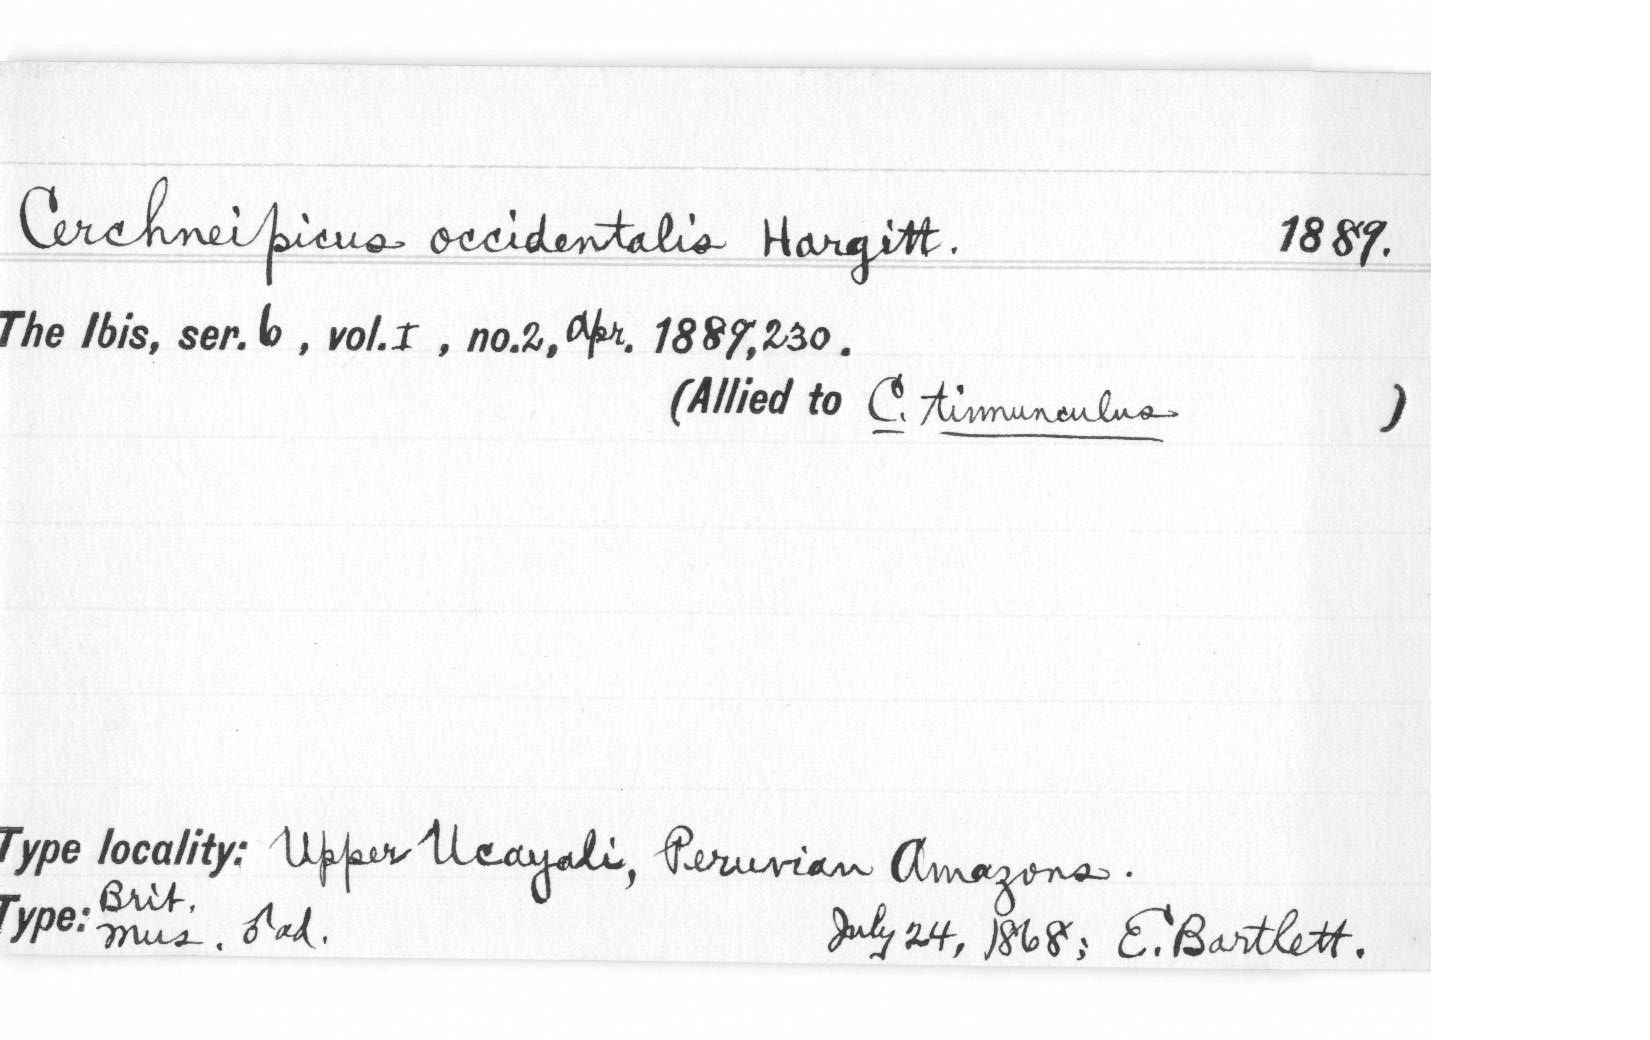 Cerchneipicus occidentalis Hargitt. 1889.
The Ibis, ser. 6, vol. I, no. 2, Apr. 1889, 230.
(Allied to C. tinnunculus )
Type locality: Upper Ucayali, Peruvian Amazons.
Type: Brit. Mus. ♂ ad. July 24, 1868; E. Bartlett.